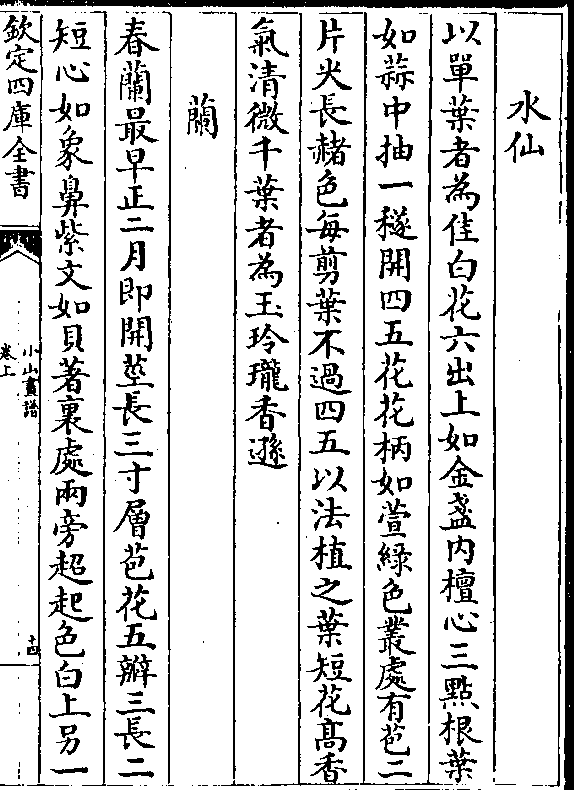 水仙
以單葉者為佳白花六出上如金盞内檀心三點根葉
如蒜中抽一穟開四五花花柄如萱綠色叢處有苞二
片尖長赭色每剪葉不過四五以法植之葉短花髙香
氣清微千葉者為玉玲瓏香遜
蘭
春蘭最早正二月即開莖長三寸層苞花五瓣三長二
短心如象鼻紫文如貝著裏處兩旁超起色白上另一
欽定四庫全書
小山畫譜
卷上
十四